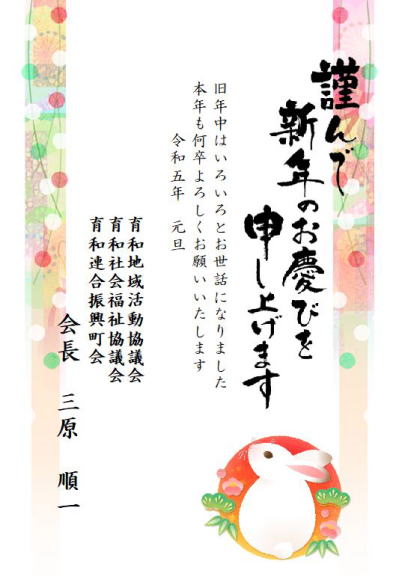 謹んで
新年のお慶びを
申し上げます
旧年中はいろいろとお世話になりました
本年も何卒よろしくお願いいたします
令和五年　元旦
育和地域活動協議会
育和社会福祉協議会
育和連合振興町会
会長　三原　順一